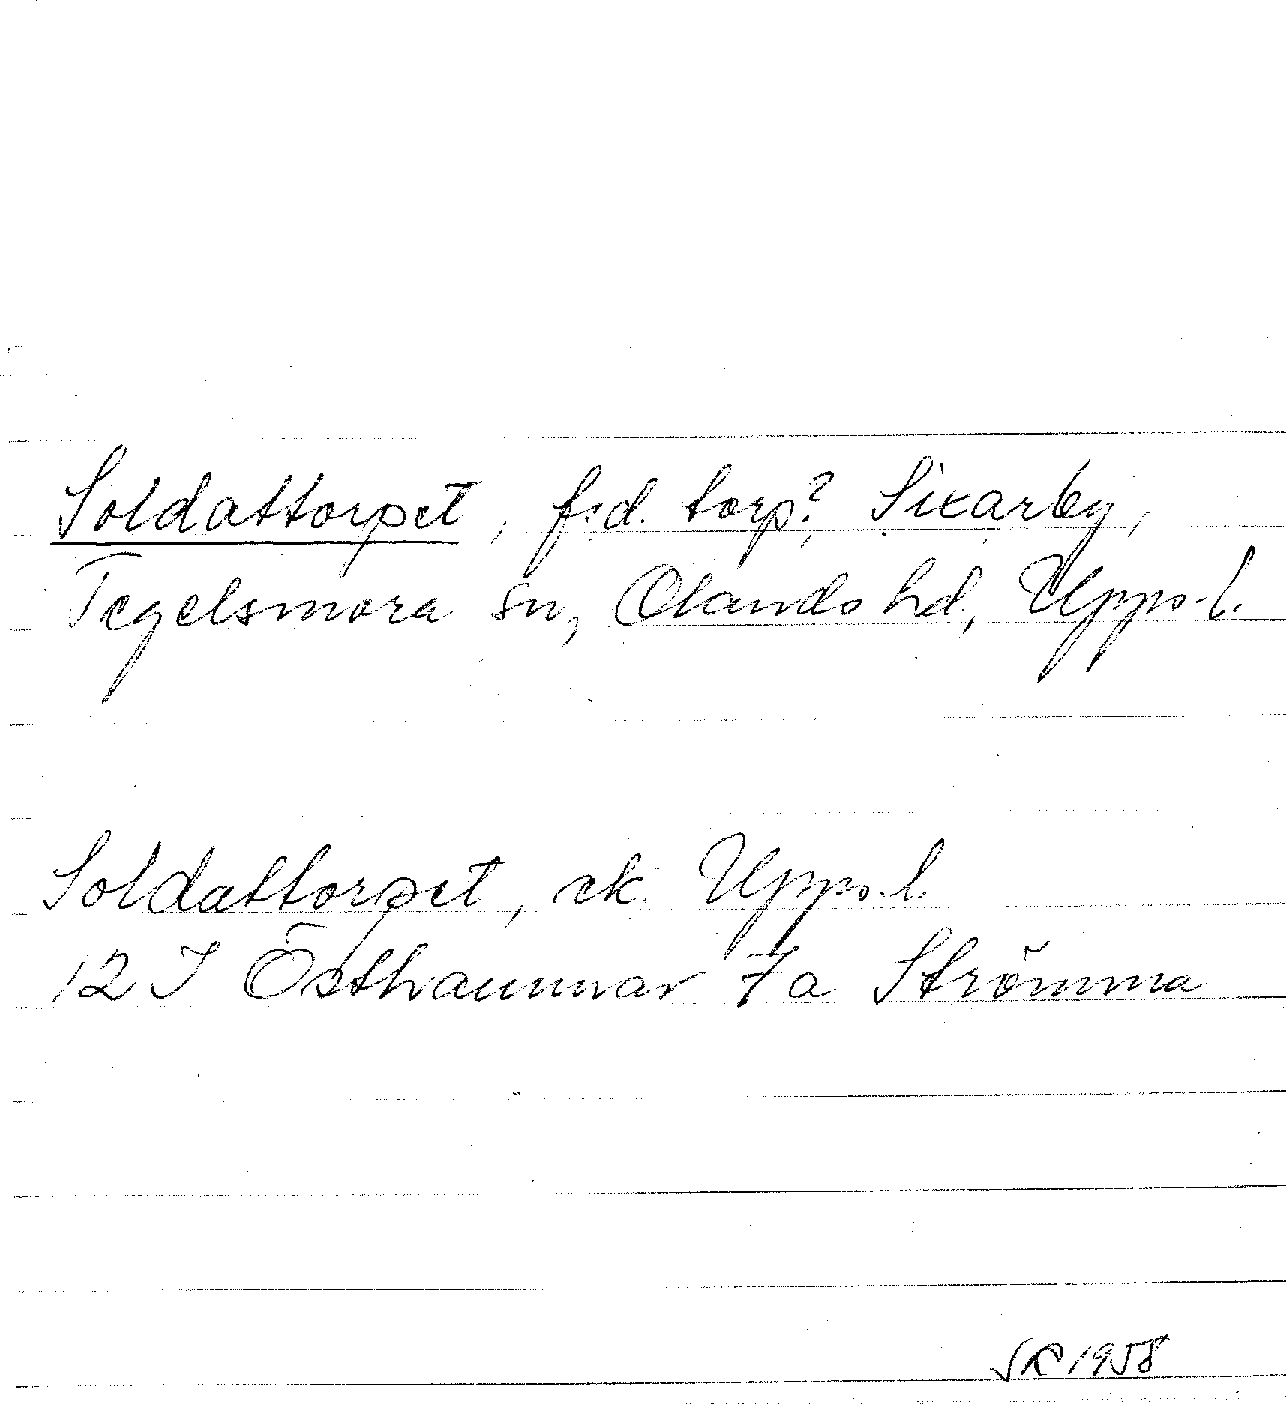 Soldattorpet, f.d. torp? Sixarby,
Tegelsmora sn, Olands hd, Upps. l.
Soldattorpet, ek. Upps. l.
12 I Östhammar 7a Strömma
1958